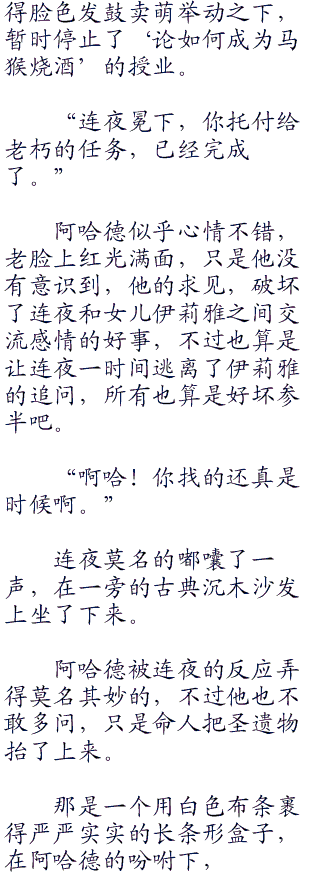 得脸色发鼓卖萌举动之下，
暂时停止了‘论如何成为马
猴烧酒’的授业。
“连夜冕下，你托付给
老朽的任务，已经完成
了。”
阿哈德似乎心情不错，
老脸上红光满面，只是他没
有意识到，他的求见，破坏
了连夜和女儿伊莉雅之间交
流感情的好事，不过也算是
让连夜一时间逃离了伊莉雅
的追问，所有也算是好坏参
半吧。
“啊哈！你找的还真是
时候啊。”
连夜莫名的嘟囔了一
声，在一旁的古典沉木沙发
上坐了下来。
阿哈德被连夜的反应弄
得莫名其妙的，不过他也不
敢多问，只是命人把圣遗物
抬了上来。
那是一个用白色布条裹
得严严实实的长条形盒子，
在阿哈德的吩咐下，